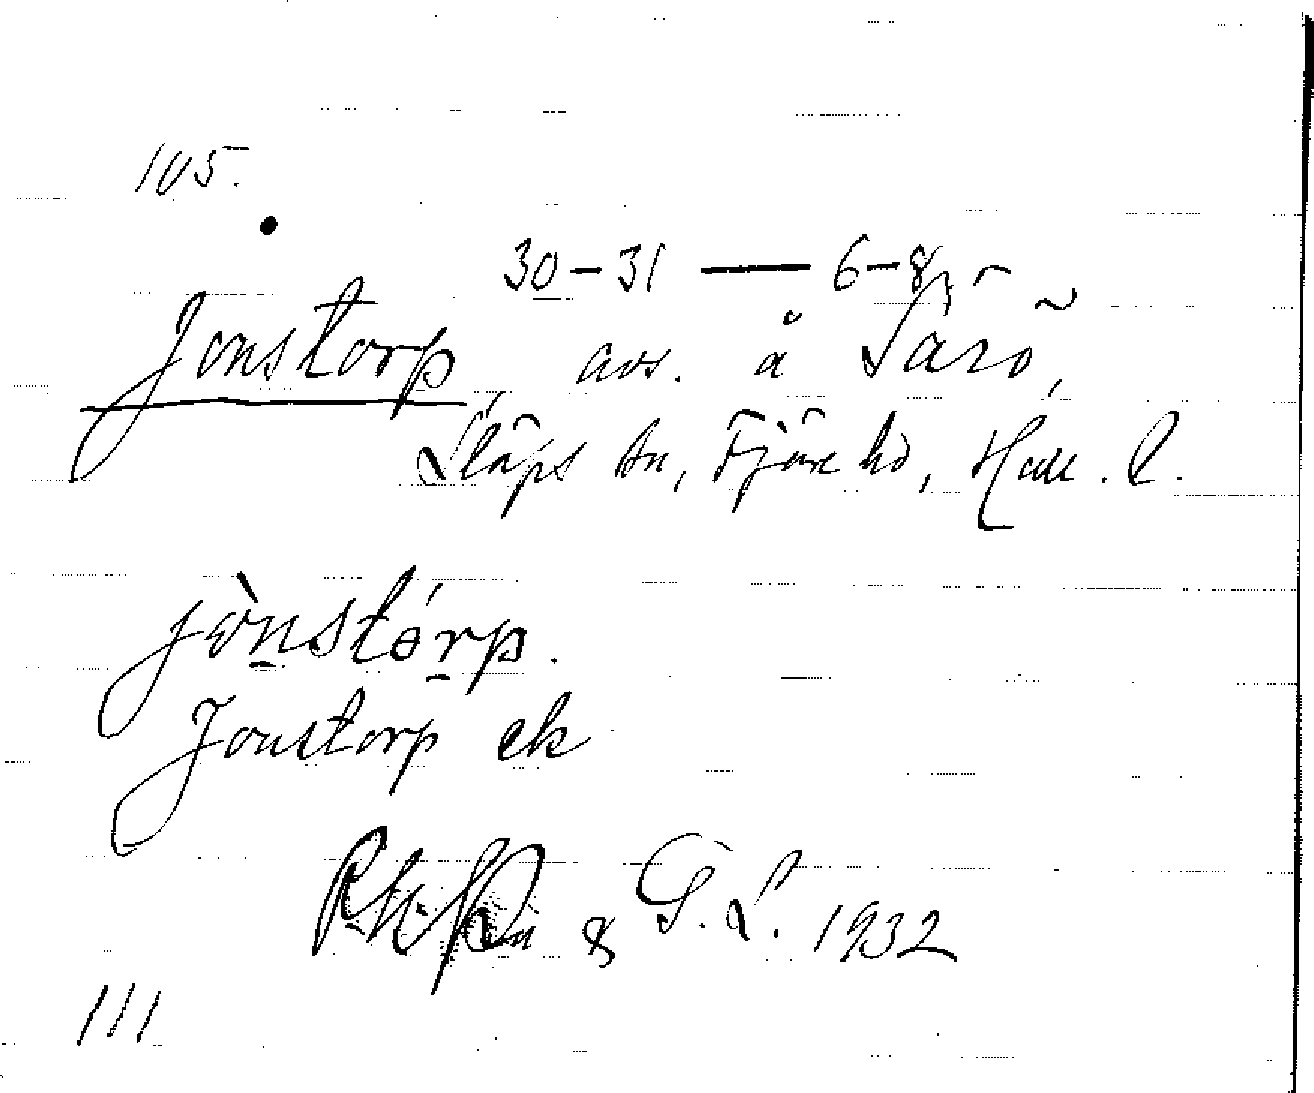 105.
30-31 — 6-8
Jonstorp, avs. å Särö,
Släps sn, Fjäre hd, Hall. l.
jònstórp.
Jonstorp ek
& G. L. 1932
111